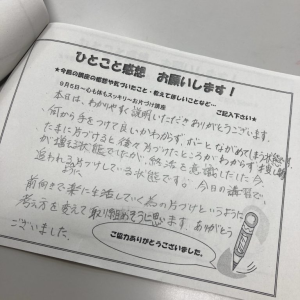 ひとこと感想 お願いします！
★今回の講座の感想や気づいたこと・教えてほしいことなど…
9月5日～心も体もスッキリ～お片づけ講座
ご記入下さい★
本日は、わかりやすく説明いただきありがとうございます。
何から手をつけて良いかわからず、ボーとながめてしまう状態です。
たまに片づけると後々片づけたところかわからず
が増え状態でしたが、終活を意識した今、
追われる片づけしている状態です。今日の講習で、
前向きで楽に生活していく為の片づけというように
考え方を変えて取り組めそうに思います。ありがとう
ございました。
ご協力ありがとうございました。